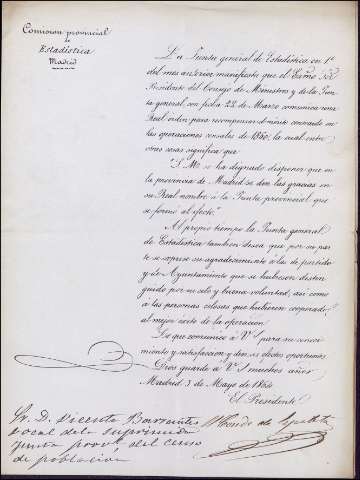 Comision provincial
de
Estadística
Madrid
La Junta general de Estadística en 1º
del mes anterior manifiesta que el Excmo Sor
Presidente del Consejo de Ministros y de la Jun
ta general, con fecha 22 de Marzo comunica una
Real orden para recompensar el mérito contraido en
las operaciones censales de 1860, la cual entre
otras cosas significa que
"S. M. se ha dignado disponer que en
la provincia de Madrid se den las gracias en
su Real nombre á la Junta provincial que
se formó al efecto."
Al propio tiempo la Junta general
de Estadística tambien desea que por su par
te se exprese su agradecimiento á las de partido
y de Ayuntamiento que se hubiesen distin
guido por su celo y buena voluntad, así como
á las personas celosas que hubieren cooperado
al mejor éxito de la operacion
Lo que comunico á V.S. para su conoci
miento y satisfaccion y demás efectos oportunos.
Dios guarde á V.S. muchos años
Madrid 3 de Mayo de 1864
El Presidente
Sr. D. Vicente Barrantes
vocal de la suprimida
junta provl. del censo
de poblacion